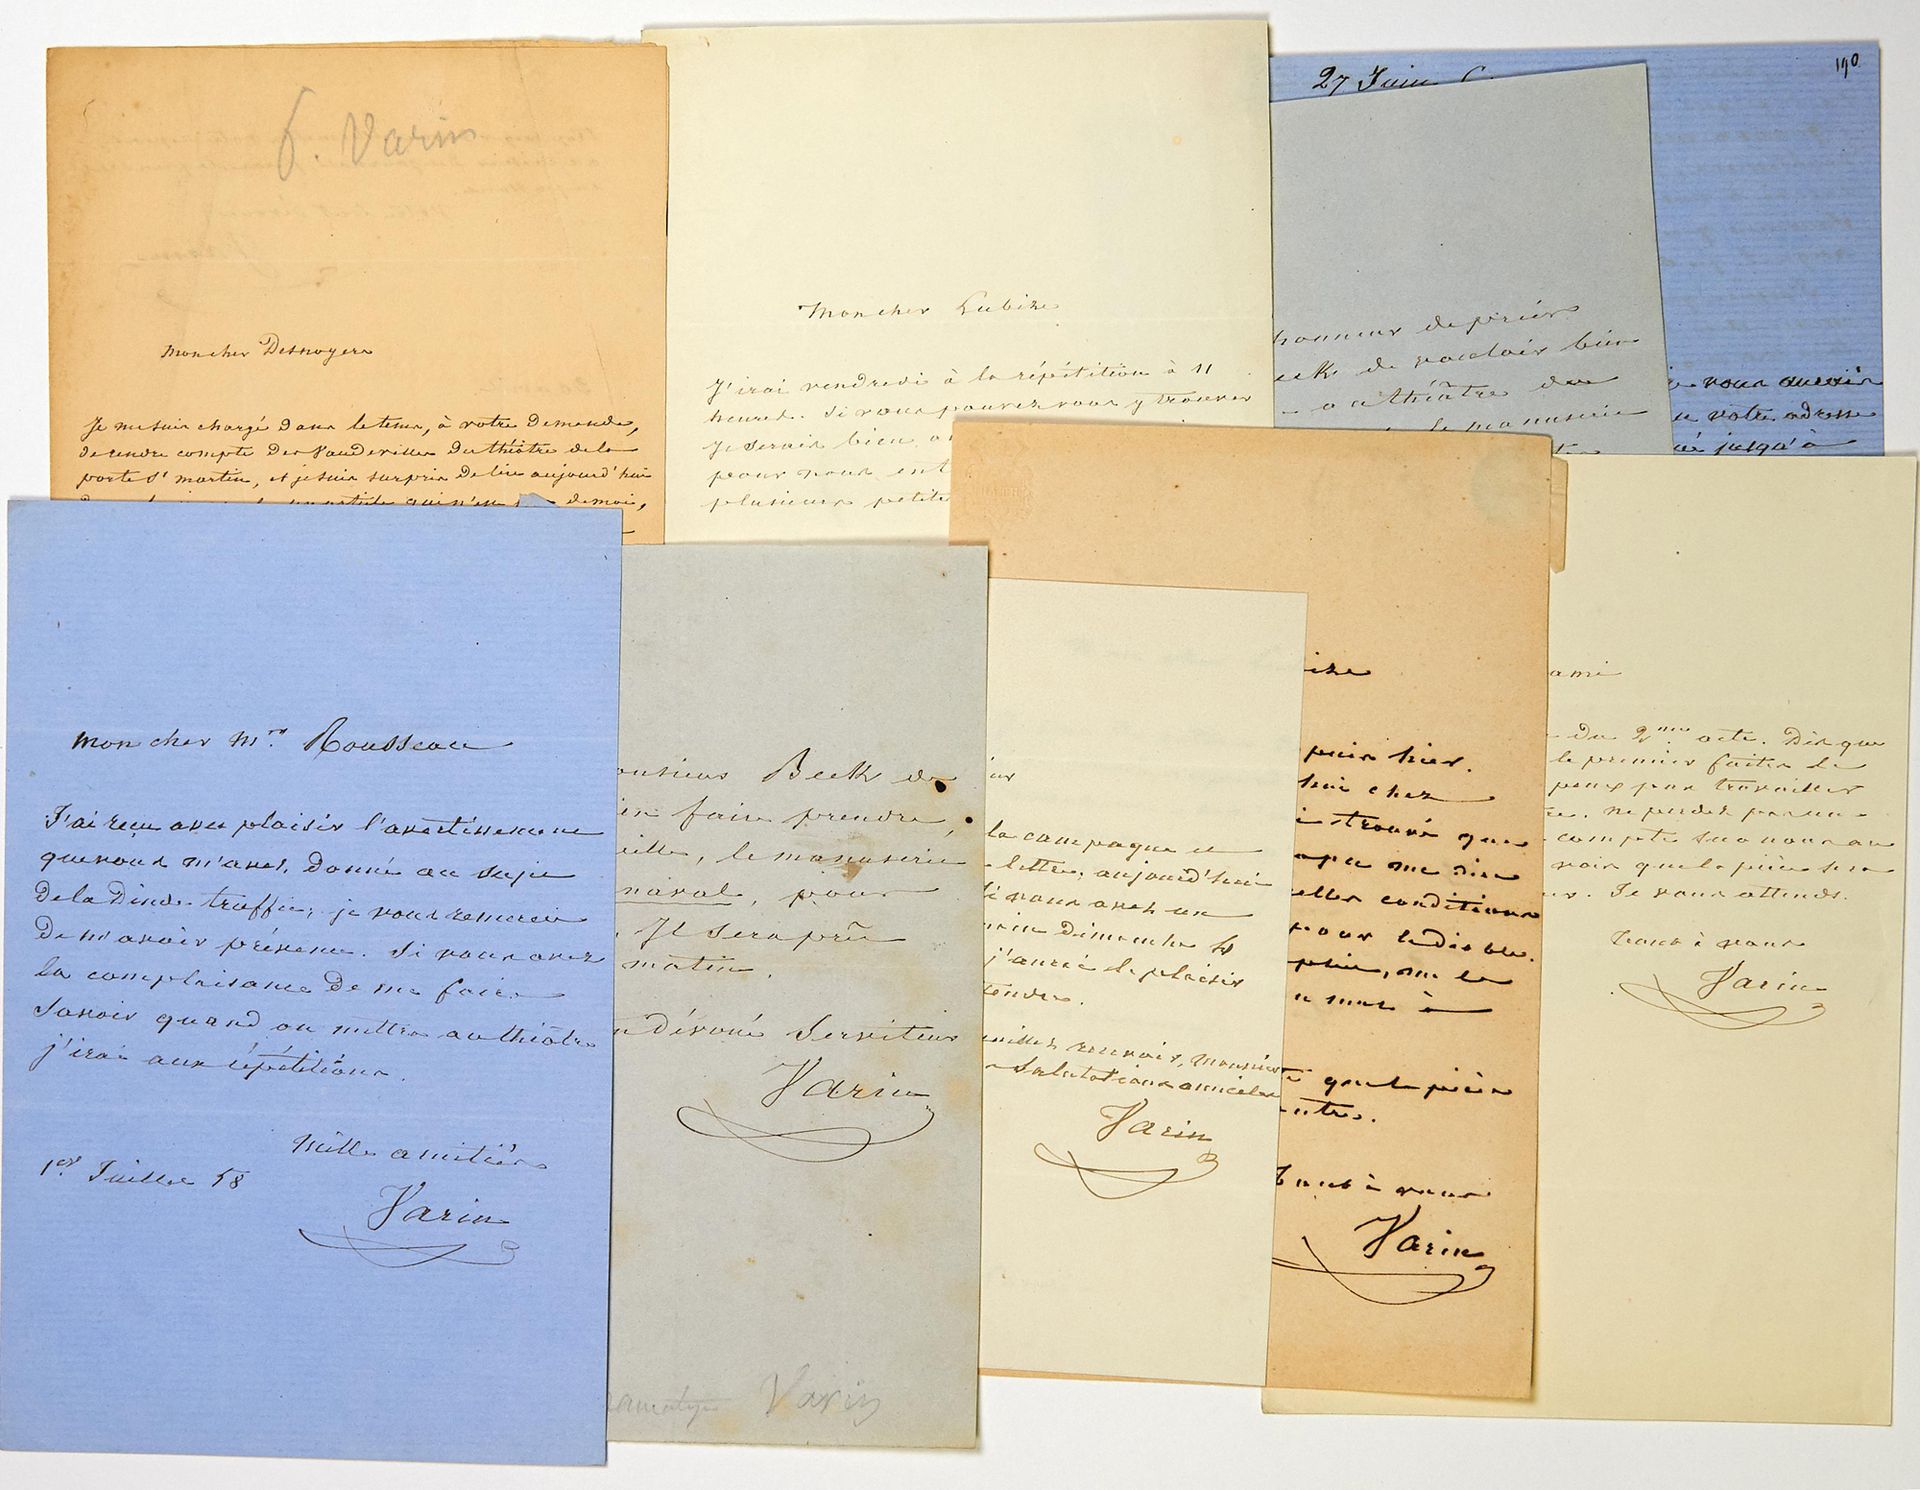 f. Varin
Mon cher Desnoyers
Je me suis chargé dans le tems, à votre demande,
de rendre compte des Vaudevilles du théâtre de la
porte St martin, et je suis surpris de lire aujourd'hui
article qui n'est de moi,
Mon cher Lubize
J'irai vendredi à la répétition à 11
heures. Si vous pouvez vous y trouver
Je serais bien
pour nous ent
plusieurs petite
27 Juin
190
honneur de prier
eck de vouloir bien
au théâtre du
le manuscrit
vous avoir
votre adresse
jusqu'à
mon cher Mr Rousseau
J'ai reçu avec plaisir l'avertissement
que vous m'avez donné au sujet
de la Dinde truffée; je vous remercie
de m'avoir prévenu. Si vous avez
la complaisance de me faire
savoir quand on mettra au théâtre
j'irai aux répétitions.
mille amitiés
1er Juillet 58
Varin
onsieur Beck de
ien faire prendre,
le manuscrit
naval, pour
Il sera prêt
matin.
dévoué Serviteur
Varin
Varin
la campagne et
lettre, aujourd'hui
Si vous avez un
dimanche
j'aurai le plaisir
tendre.
recevoir, monsieur
Salutations amicales
Varin
ize
puis hier.
hui chez
trouvé que
pu me dire
elles conditions
pour
me la
à
quelque pièce
entre.
Tout à vous
Varin
ami
du 2me acte. Dès que
le premier faites le
peux pas travailler
ne perdez pas un
compte sur nous au
voir que la pièce sera
Je vous attends.
Tout à vous
Varin